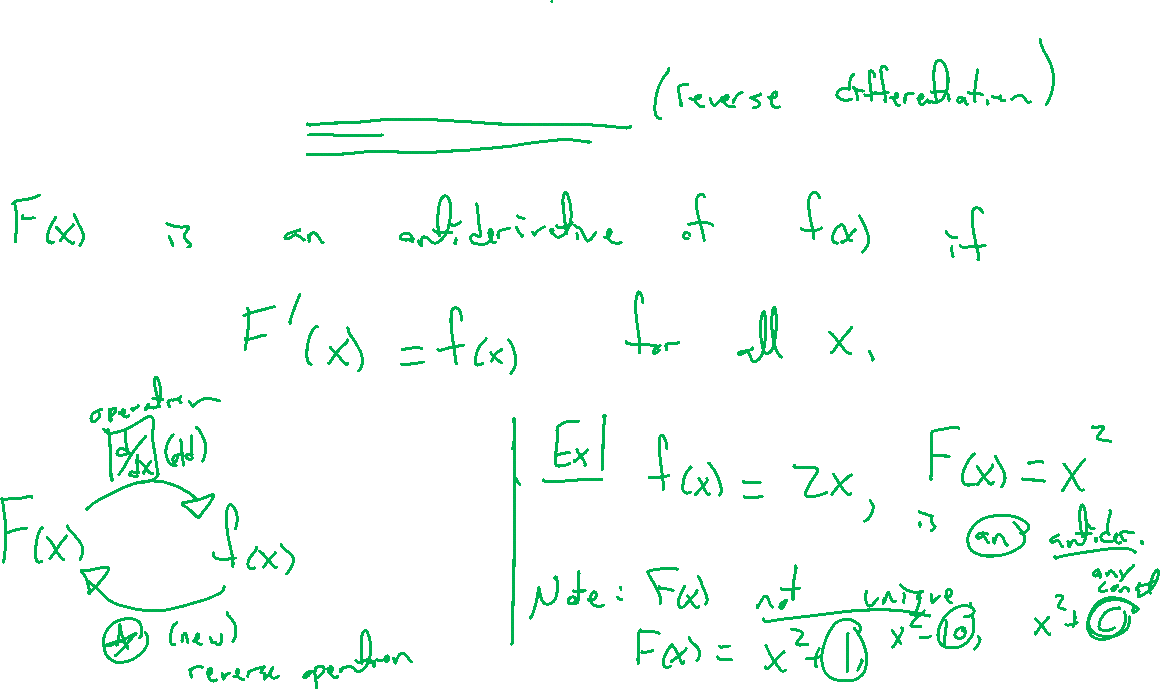 (reverse differentiation)
F(x) is an antiderivative of f(x) if
F'(x) = f(x) for all x.
operation
d/dx (old)
F(x) f(x)
(new)
reverse operation
Ex f(x) = 2x, F(x) = x²
is an antider.
Note: F(x) not unique
F(x) = x² + 1, x² - 10, x² + C
any const